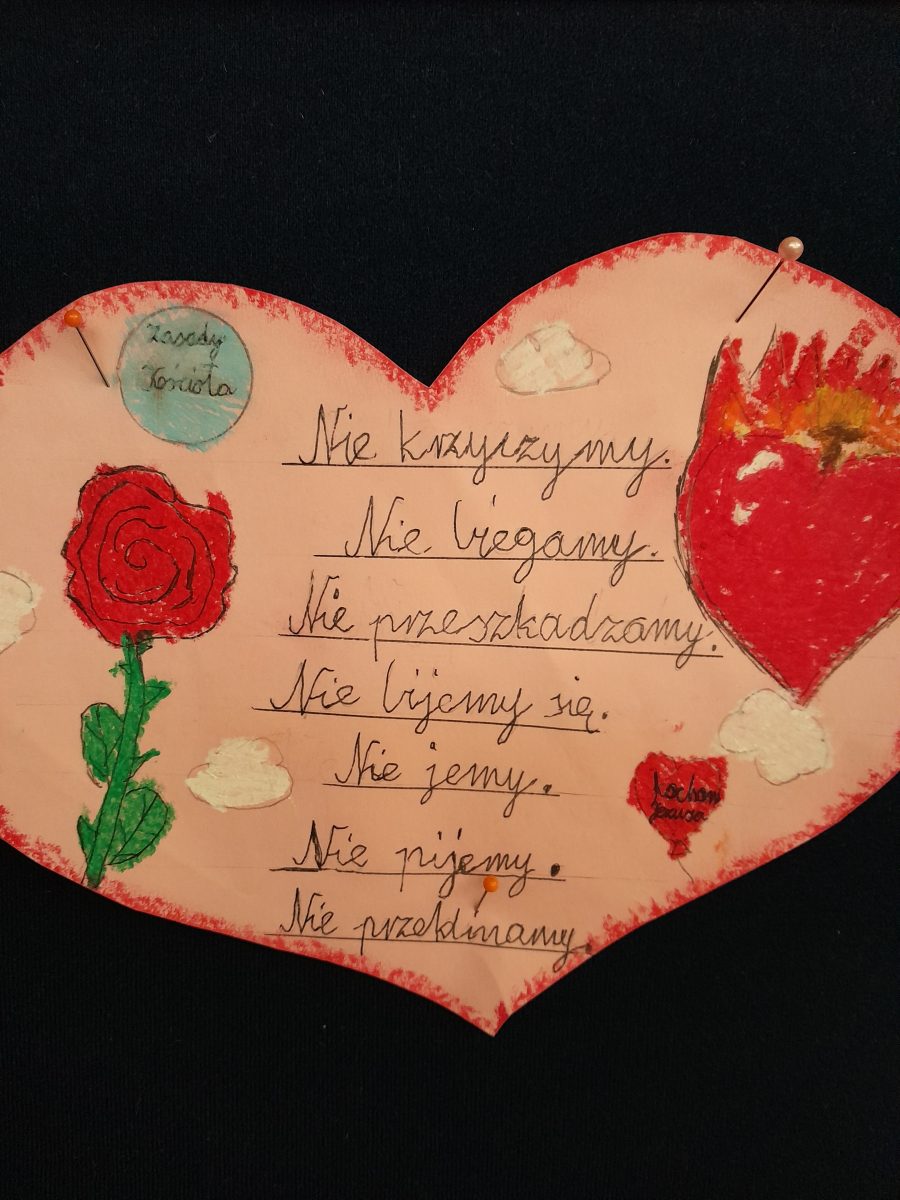 Zasady
Kościoła
Nie krzyczymy.
Nie biegamy.
Nie przeszkadzamy.
Nie bijemy się.
Nie jemy.
Nie pijemy.
Nie przeklinamy.
Kocham
Jezusa